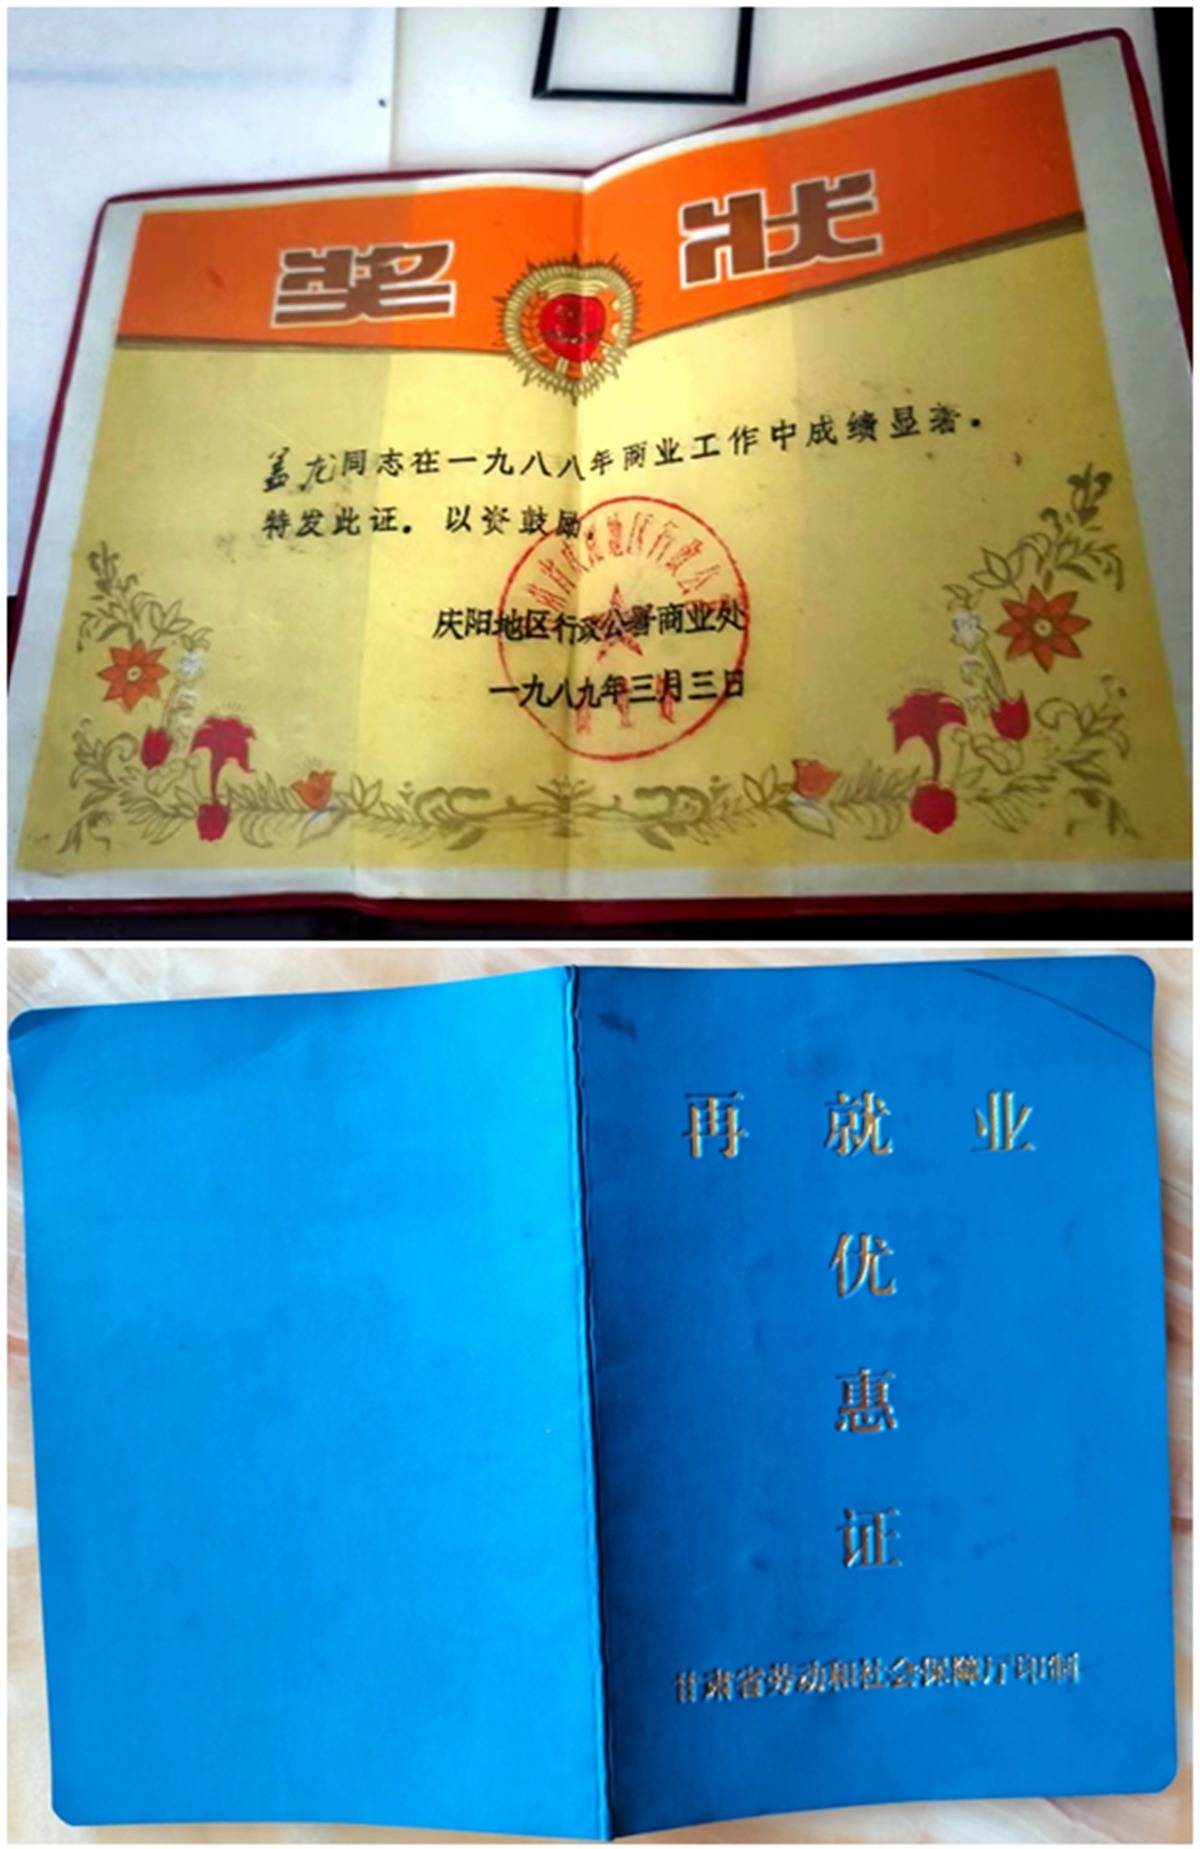 奖状
盖龙同志在一九八八年商业工作中成绩显著。
特发此证。以资鼓励
庆阳地区行政公署商业处
一九八九年三月三日
再就业
优
惠
证
甘肃省劳动和社会保障厅印制